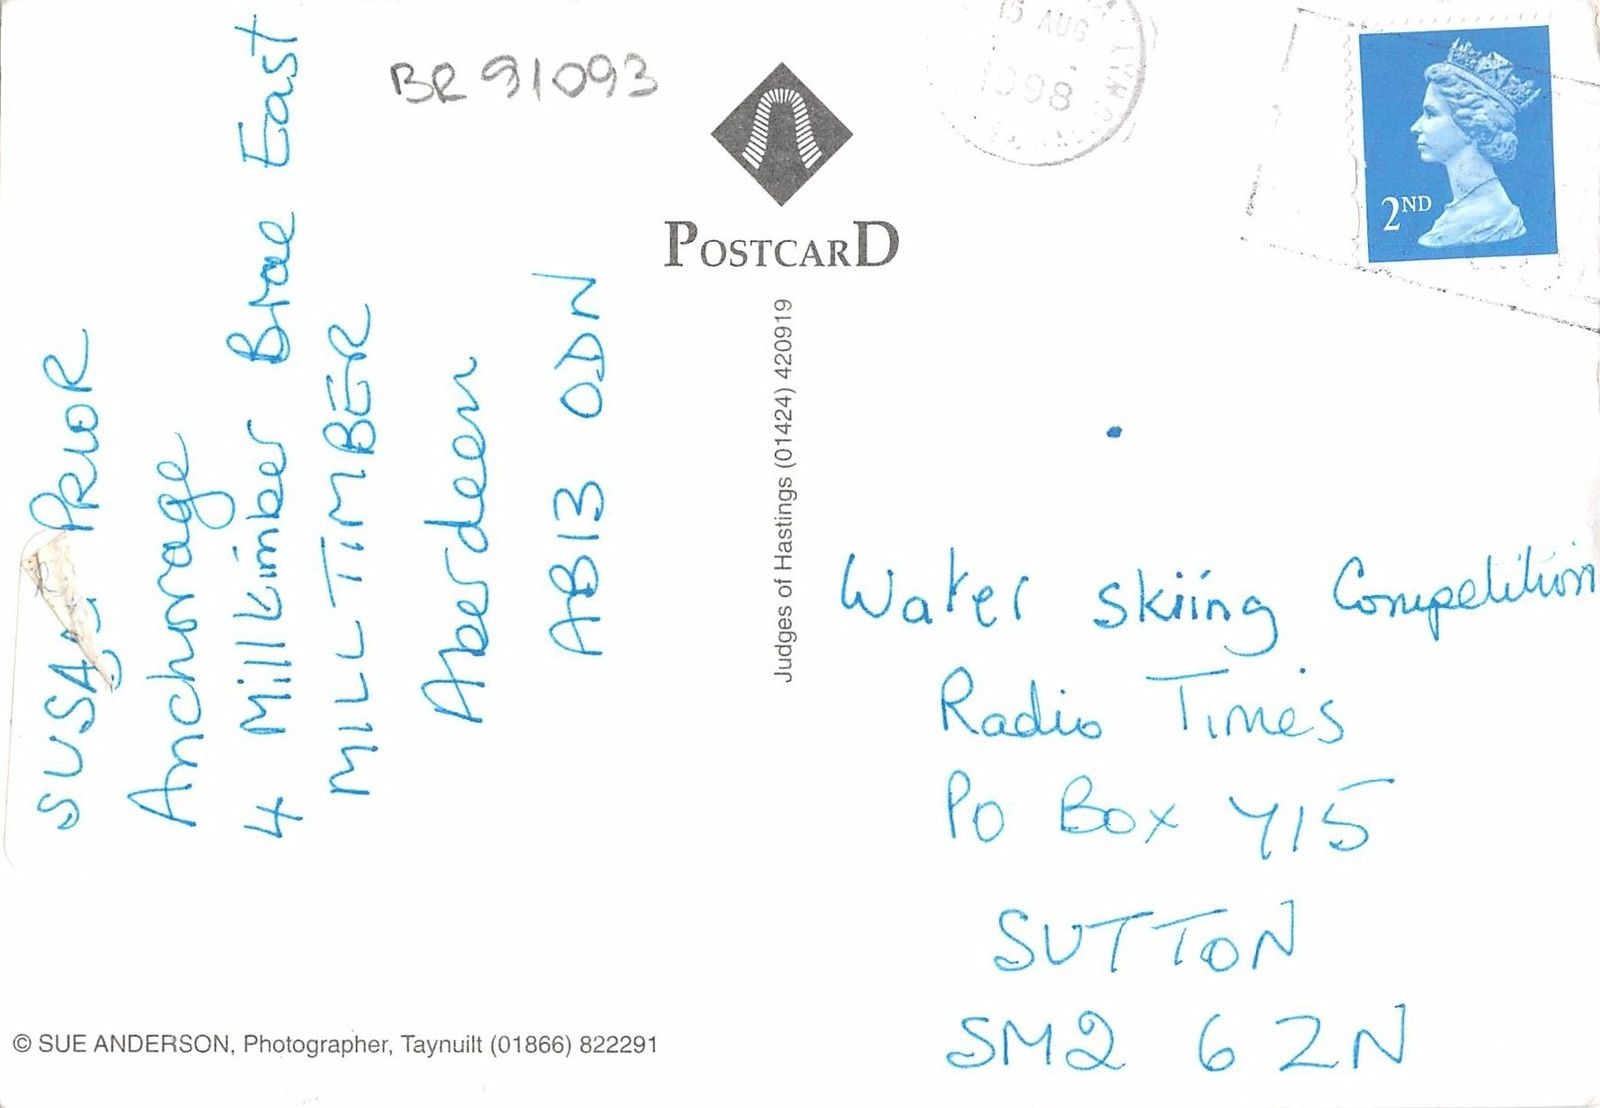 BR 91093
SUSAN PRIOR
Anchorage
4 Millkimber Brae East
MILLTIMBER
Aberdeen
AB13 0DN
© SUE ANDERSON, Photographer, Taynuilt (01866) 822291
POSTCARD
Judges of Hastings (01424) 420919
15 AUG
1998
2ND
Water skiing Competition
Radio Times
PO Box 715
SUTTON
SM2 6ZN